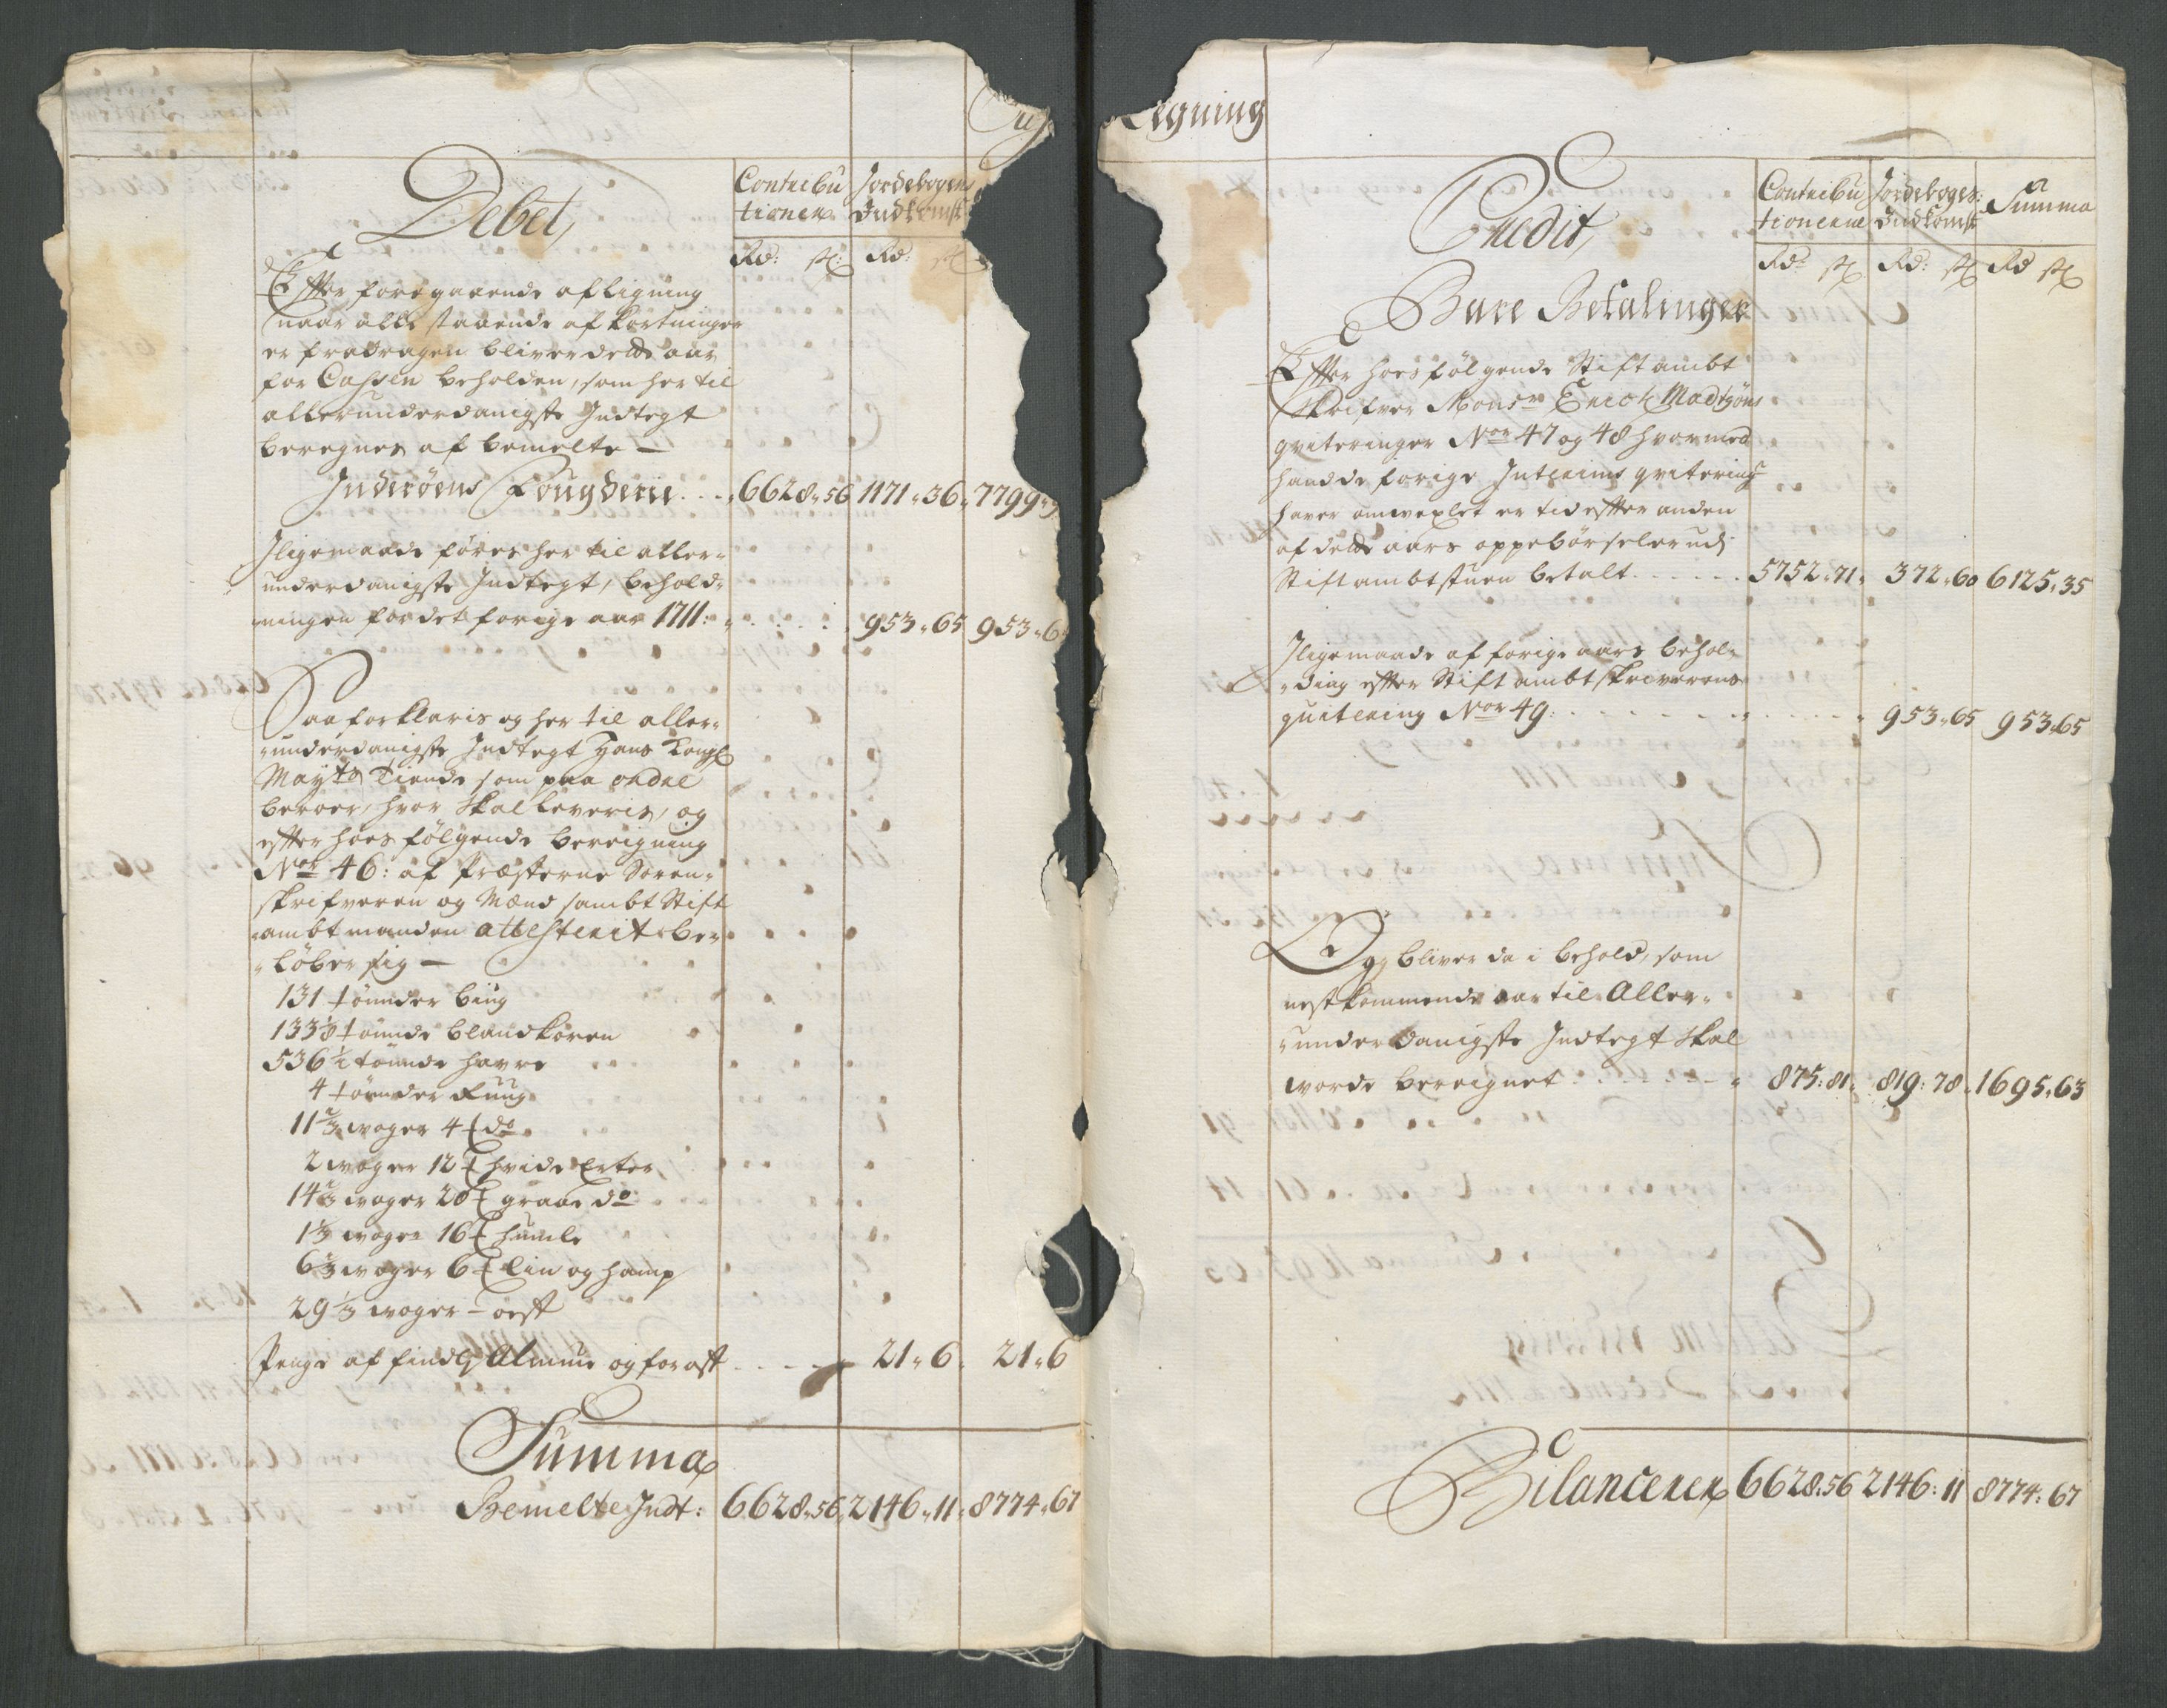 Debet,
Contribu
tionen
Jordebogens
Indkomst
Rd: sk: Rd: sk
Effter foregaaende afligning
naar alle staaende afkortninger
er fradragen bliver dette aar
for Cassen beholden, som her til
allerunderdanigste Indtegt
beregnes af bemelte —
Inderöens Fougderie . . . 6628 „ 56 1171 „ 36 „ 7799 „
Iligemaade føres her til aller-
underdanigste Indtegt, behold-
ningen for det forige aar 1711: . . . . 953 „ 65 953 „ 65
Saa forklaris og her til aller-
underdanigste Indtegt Hans Kongl
Mayts Tiende som paa ordre
beroer, hvor skal leveris, og
effter hoes følgende beregning
Nor 46: af Præsterne Soren-
skrifveren og Mænd sambt Stift
ambtmanden attesterit be-
løber sig —
131 tønder biug
133 1/8 tønde blandkoren
536 1/2 tønde havre
4 tønder Rug
11 2/3 woger 4 ℔ do
2 woger 12 ℔ hvide Erter
14 2/3 woger 20 ℔ graae do
1 1/3 woger 16 ℔ humle
6 2/3 woger 6 ℔ lin og hamp
29 1/3 woger — oest
Penge af findl: Almue og for ost . . . 21 „ 6 „ 21 „ 6
Summa
Bemelte Indt: 6628 „ 56 „ 2146 „ 11 „ 8774 „ 67
egning
Credit,
Contribu
tionerne
Jordeboges:
Indkomst
Summa
Rd: sk Rd: sk Rd sk
Bare Betalinger
Effter hoes følgende Stiftambt
Skrifver Monsr Erich Madtzöns
qviteringer Nor 47 og 48 hvormed
hand de forige Interims qvitering:
haver omvexlet er tid effter anden
af dette aars oppebørseler udj
Stiftambtstuen betalt . . . . . 5752 „ 71 „ 372 „ 60 6125 „ 35
Iligemaade af forige aars behol-
ding effter Stiftambtskriverens
quitering Nor 49: . . . . . . . 953 „ 65 953 „ 65
Og bliver da i behold, som
nestkommende aar til Aller-
underdanigste Indtegt skal
worde bereignet . . . . . 875: 81 „ 819: 78 „ 1695 „ 63
Bilancerer 6628 „ 56 2146: 11 8774: 67